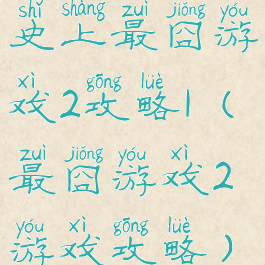 shǐ shàng zuì jiǒng yóu
史上最囧游
xì gōng lüè
戏2攻略1(
zuì jiǒng yóu xì
最囧游戏2
yóu xì gōng lüè
游戏攻略)